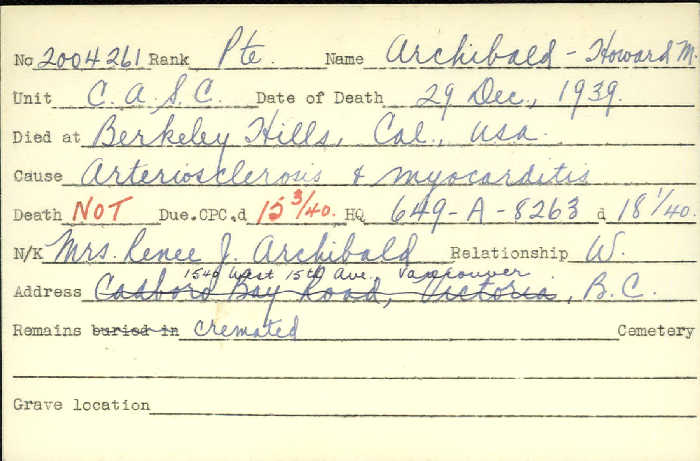 No 2004261 Rank Pte. Name Archibald - Howard M.
Unit C. A. S. C. Date of Death 29 Dec., 1939.
Died at Berkeley Hills, Cal., USA.
Cause Arteriosclerosis & myocarditis
Death NOT Due.CPC.d 15 3/40. HQ 649-A-8263 d 18 1/40.
N/K Mrs. Renee J. Archibald Relationship W.
1549 West 15th Ave., Vancouver
Address Cadboro Bay Road, Victoria, B.C.
Remains buried in cremated Cemetery
Grave location